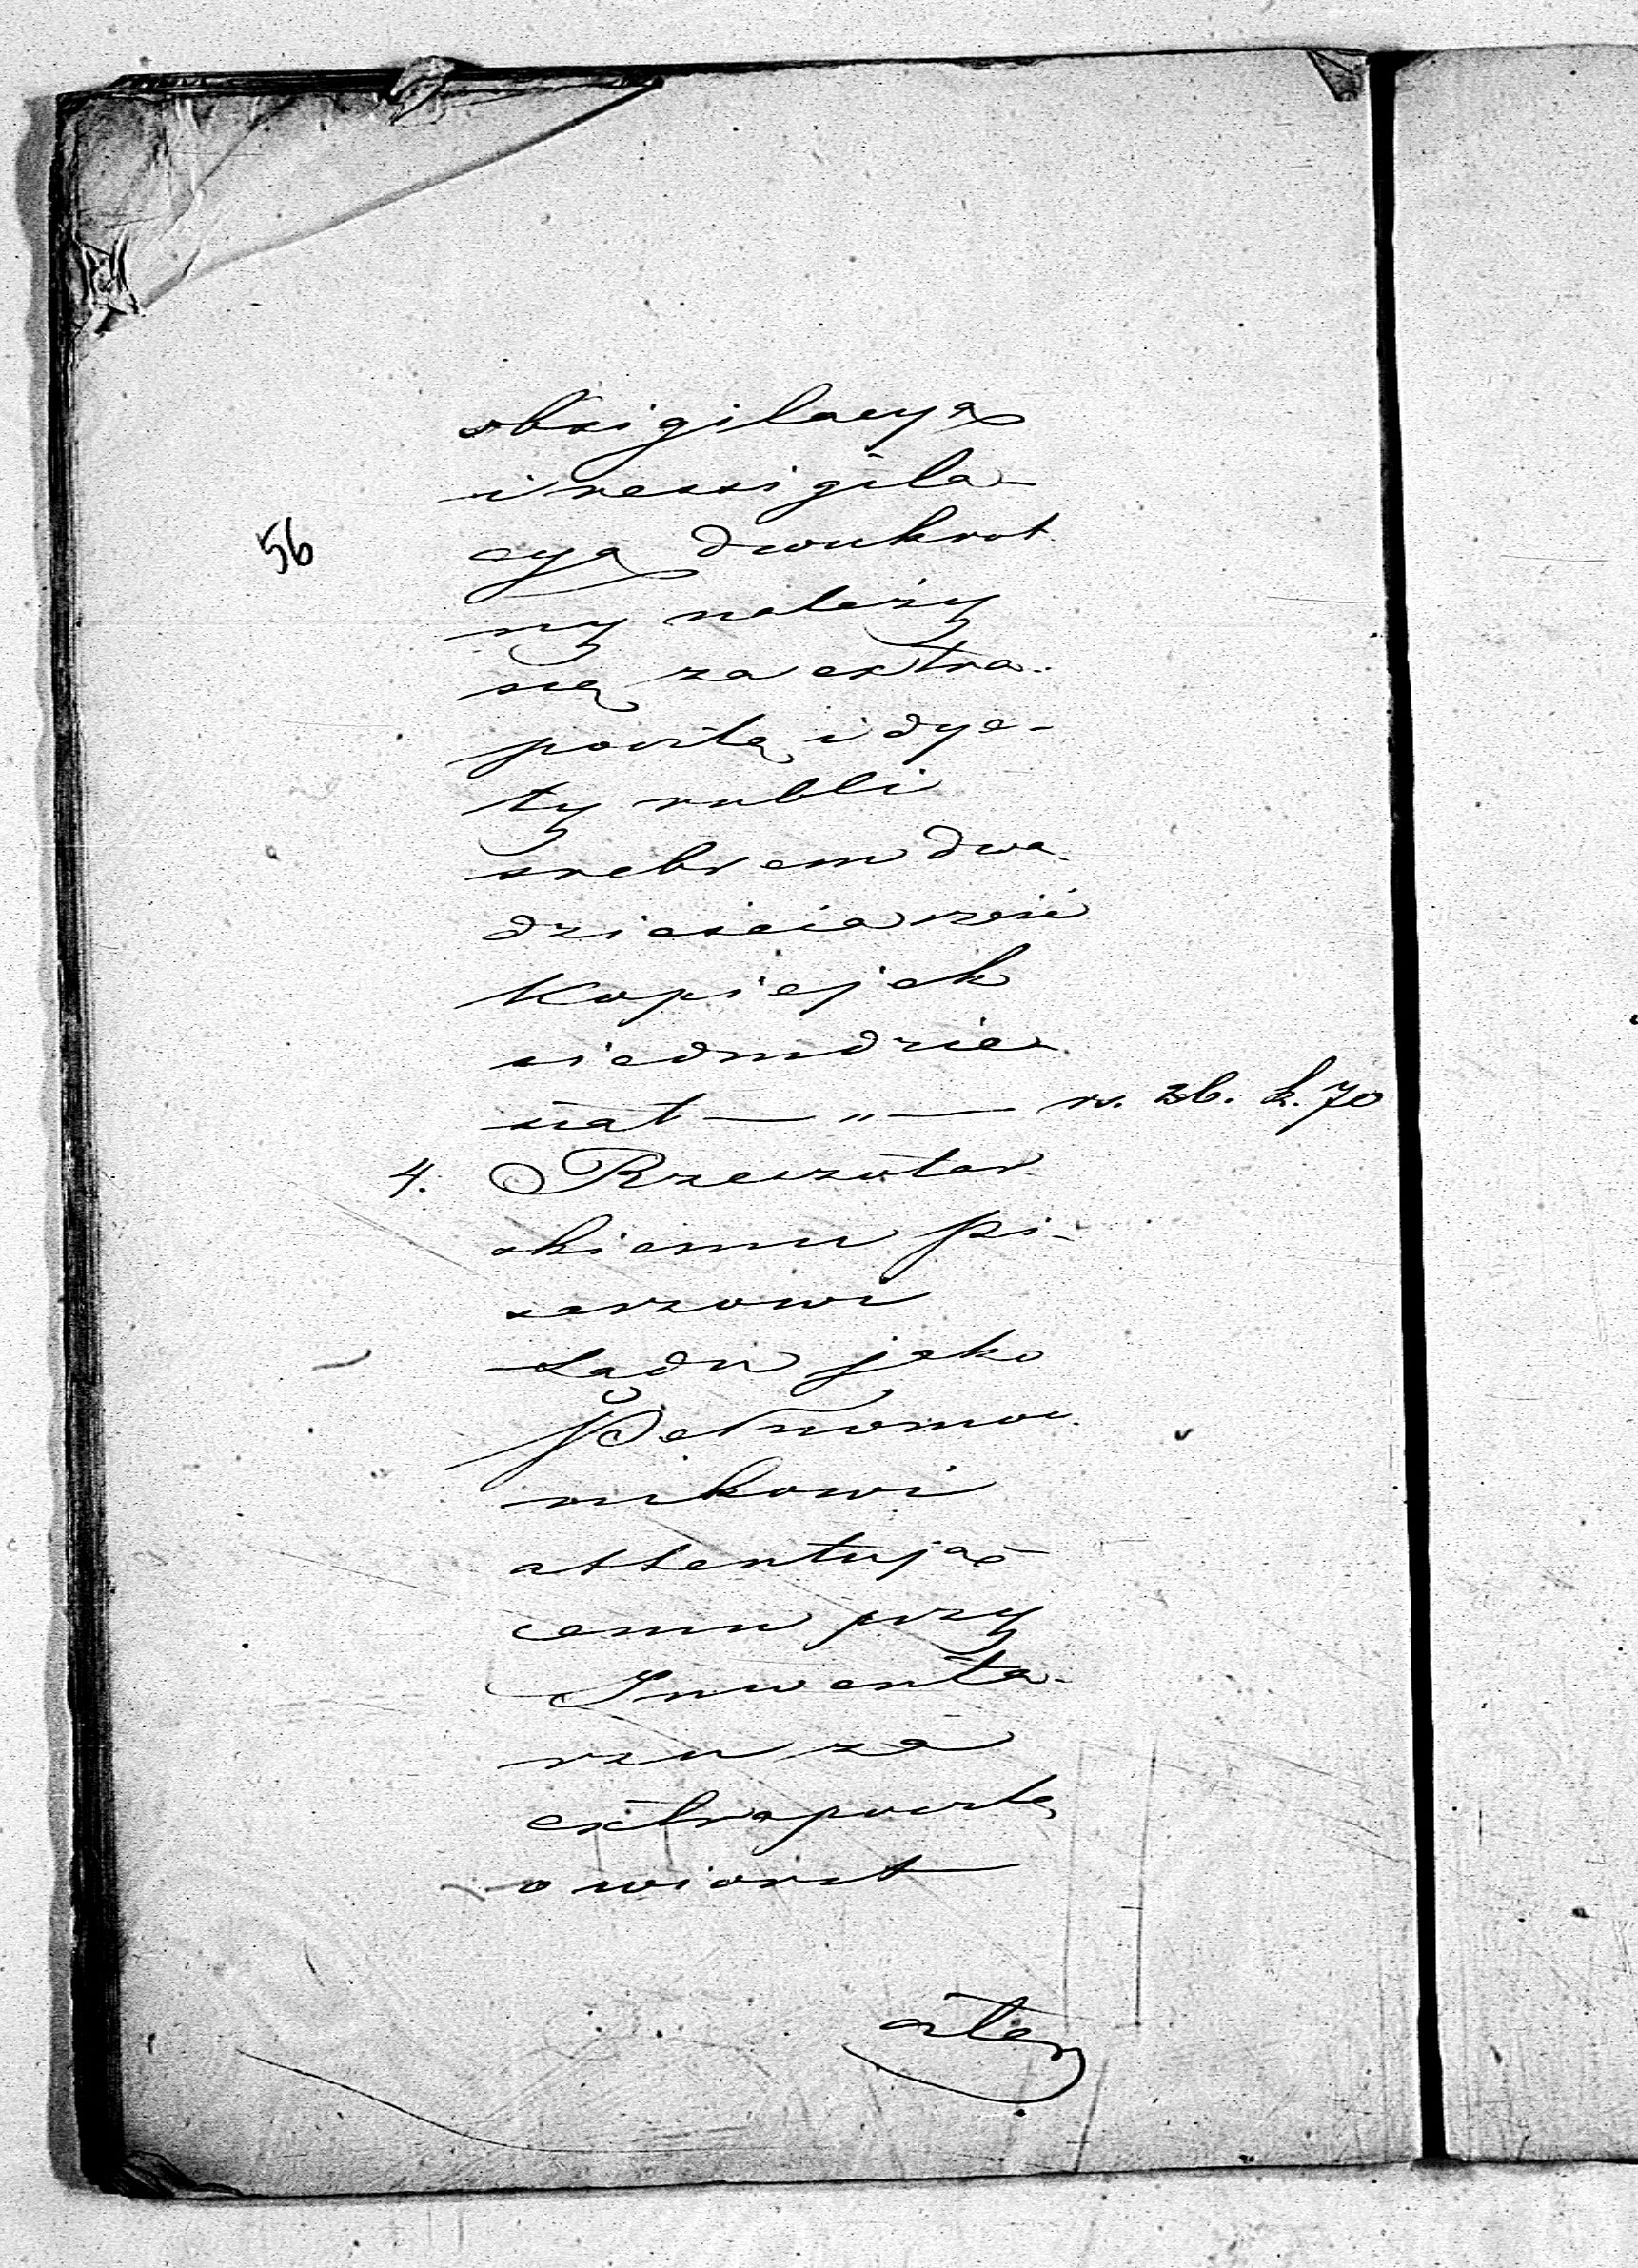 obsigilacyą
i ressigila-
56
cyą dwukrot
ny należy
się za extra-
pocztę i dye-
ty rubli
srebrem dwa-
dzieścia sześć
Kopiejek
siedmdzie-
siąt — „ — rs. 26. k. 70
4. Rzeszotar
skiemu pi-
sarzowi
Sądu jako
Pełnomoc-
nikowi
attentują-
cemu przy
Inwenta-
rzu za
extrapocztę
o wiorst